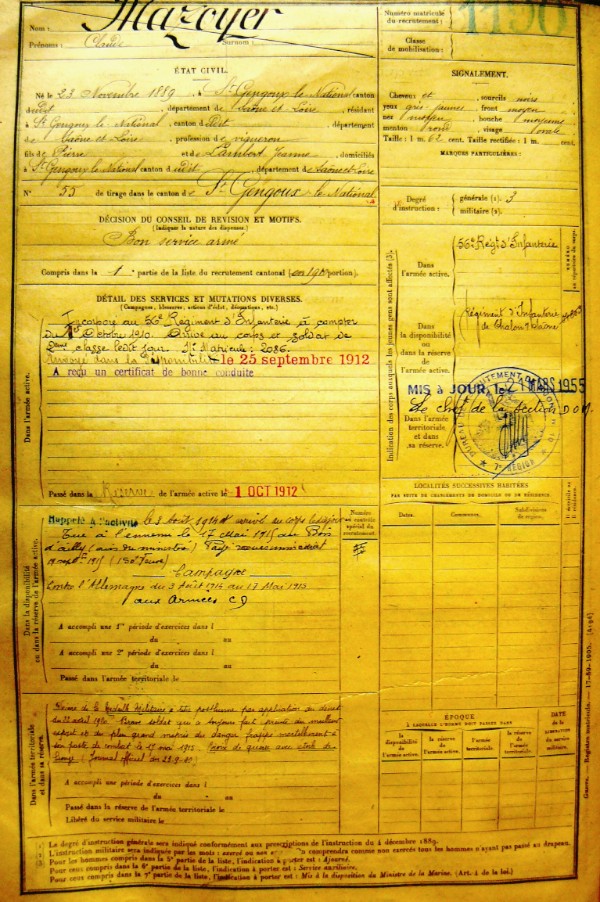 Nom : Mazoyer
Prénoms : Claude Surnom :
ÉTAT CIVIL.
Né le 23 Novembre 1889, à St Gengoux le National, canton
dudit, département de Saône et Loire, résidant
à St Gengoux le National, canton dudit, département
de Saône et Loire, profession de vigneron
fils de Pierre et de Lambert Jeanne, domiciliés
à St Gengoux le National canton dudit, département de Saône et Loire
N° 55 de tirage dans le canton de St Gengoux le National
DÉCISION DU CONSEIL DE REVISION ET MOTIFS.
(Indiquer la nature des dispenses.)
Bon service armé
Compris dans la 1e partie de la liste du recrutement cantonal
DÉTAIL DES SERVICES ET MUTATIONS DIVERSES.
(Campagnes, blessures, actions d'éclat, décorations, etc.)
Dans l'armée active.
Incorporé au 56e Régiment d'Infanterie à compter
du 1er Octobre 1910. Arrivé au corps et soldat de
2ème classe ledit jour. N° Matricule : 2086.
Envoyé dans la disponibilité le 25 septembre 1912
A reçu un certificat de bonne conduite
Passé dans la Réserve de l'armée active le 1 OCT 1912
Dans la disponibilité
ou dans la réserve de l'armée active.
Rappelé à l'activité le 3 Août 1914 et arrivé au corps ledit jour
Tué à l'ennemi le 17 Mai 1915 au Bois
d'Ailly (avis du ministère)
Campagne
Contre l'Allemagne du 3 Août 1914 au 17 Mai 1915
aux Armées
Numéro
au contrôle
spécial du
recrutement.
A accompli une 1re période d'exercices dans l
du au
A accompli une 2e période d'exercices dans l
du au
Passé dans l'armée territoriale le
Dans l'armée territoriale
et dans sa réserve.
Médaille Militaire à titre posthume par application du décret
du Brave soldat qui a toujours fait preuve du meilleur
esprit et du plus grand mépris du danger frappé mortellement à
son poste de combat le 17 mai 1915. Croix de guerre avec étoile de
bronze (Journal officiel du
A accompli une période d'exercices dans l
du au
Passé dans la réserve de l'armée territoriale le
Libéré du service militaire le
Numéro matricule
du recrutement : 1196
Classe
de mobilisation :
SIGNALEMENT.
Cheveux et sourcils noirs
yeux gris jaunes front moyen
nez moyen bouche moyenne
menton rond visage ovale
Taille : 1 m. 62 cent. Taille rectifiée : 1 m. cent.
MARQUES PARTICULIÈRES :
Degré
d'instruction :
générale (1). 3
militaire (2).
Indication des corps auxquels les jeunes gens sont affectés (3).
Dans
l'armée active.
56e Régt d'Infanterie
Dans
la disponibilité
ou dans la réserve
de
l'armée active.
Régiment d'Infanterie
de Chalon s/Saône
Dans
l'armée
territoriale
et dans
sa réserve.
MIS à JOUR, le 21 MARS 1955
Le chef de la section
7e RÉGION
LOCALITÉS SUCCESSIVES HABITÉES
PAR SUITE DE CHANGEMENTS DE DOMICILE OU DE RÉSIDENCE
Dates. Communes. Subdivisions de région.
ÉPOQUE
À LAQUELLE L'HOMME DOIT PASSER DANS
la disponibilité de l'armée active.
la réserve de l'armée active.
l'armée territoriale.
la réserve de l'armée territoriale.
DATE de la LIBÉRATION du service militaire.
(1) Le degré d'instruction générale sera indiqué conformément aux prescriptions de l'instruction du 4 décembre 1889.
(2) L'instruction militaire sera indiquée par les mots : exercé ou non comprendra comme non exercés tous les hommes n'ayant pas passé au drapeau.
(3) Pour les hommes compris dans la 5e partie de la liste, l'indication à porter est : Ajourné.
Pour ceux compris dans la 6e partie de la liste, l'indication à porter est : Service auxiliaire.
Pour ceux compris dans la 7e partie de la liste, l'indication à porter est : Mis à la disposition du Ministre de la Marine. (Art. 4 de la loi.)